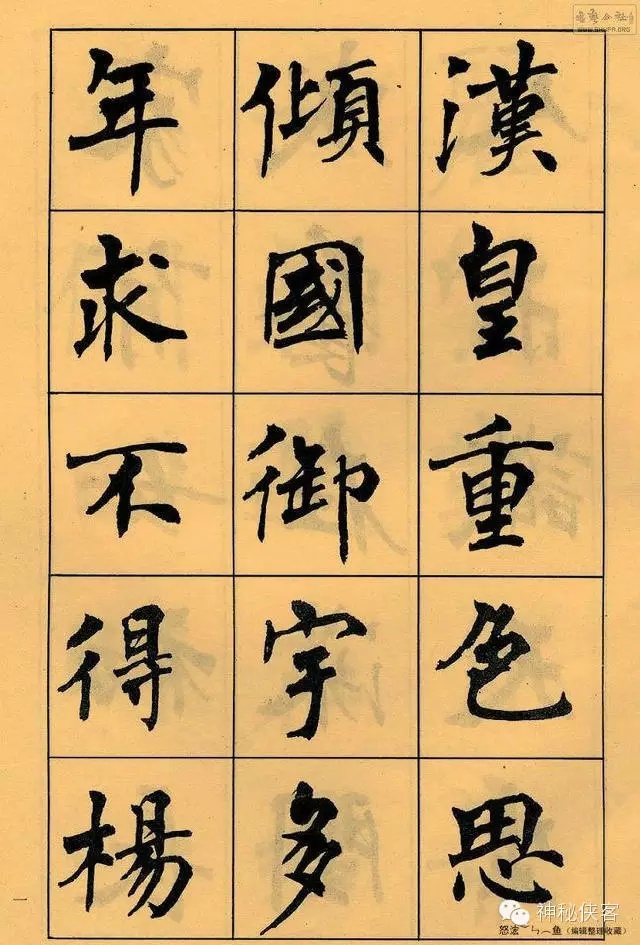 漢皇重色思
傾國御宇多
年求不得楊
一
WWW.SHUFA.ORG
神秘侠客
怒浤 ㄣ︵鱼（编辑整理收藏）